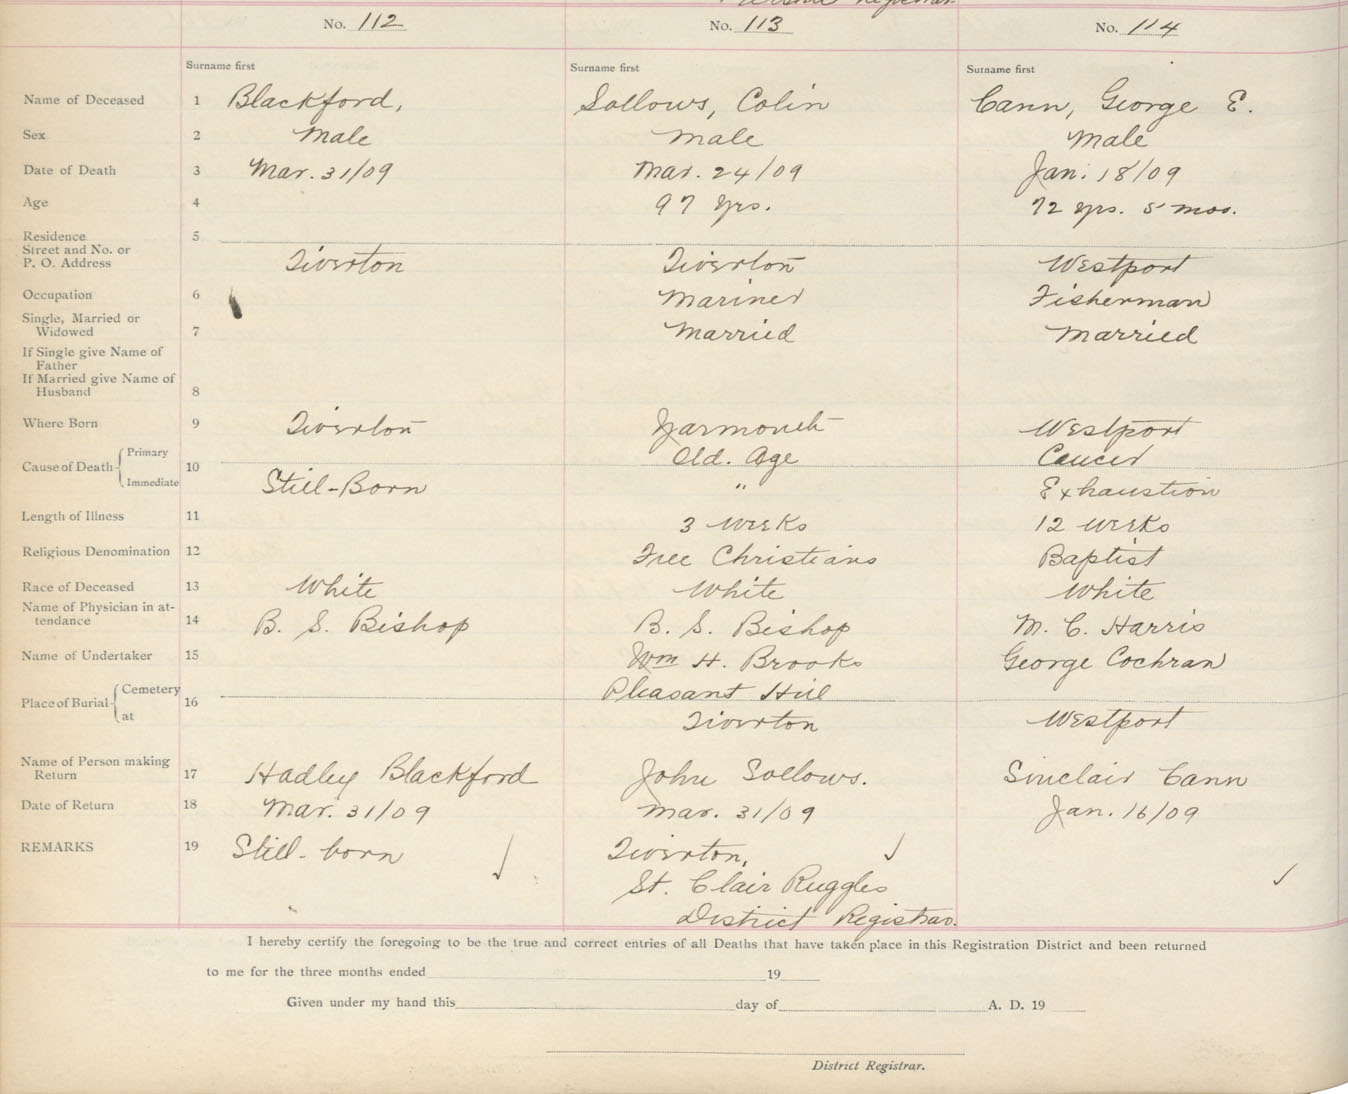 No. 112 No. 113 No. 114
Surname first Surname first Surname first
Name of Deceased 1 Blackford, Sollows, Colin Cann, George E.
Sex 2 Male Male Male
Date of Death 3 Mar. 31/09 Mar. 24/09 Jan. 18/09
Age 4 97 yrs. 72 yrs. 5 mos.
Residence 5
Street and No. or
P. O. Address Tiverton Tiverton Westport
Occupation 6 Mariner Fisherman
Single, Married or
Widowed 7 Married Married
If Single give Name of
Father
If Married give Name of
Husband 8
Where Born 9 Tiverton Yarmouth Westport
Cause of Death Primary 10 Old. Age Cancer
Immediate Still-Born " Exhaustion
Length of Illness 11 3 weeks 12 weeks
Religious Denomination 12 Free Christians Baptist
Race of Deceased 13 White White White
Name of Physician in at-
tendance 14 B. S. Bishop B. S. Bishop M. C. Harris
Name of Undertaker 15 Wm H. Brooks George Cochran
Place of Burial Cemetery 16 Pleasant Hill
at Tiverton Westport
Name of Person making
Return 17 Hadley Blackford John Sollows. Sinclair Cann
Date of Return 18 Mar. 31/09 Mar. 31/09 Jan. 16/09
REMARKS 19 Still-born Tiverton,
St. Clair Ruggles
District Registrar.
I hereby certify the foregoing to be the true and correct entries of all Deaths that have taken place in this Registration District and been returned
to me for the three months ended 19
Given under my hand this day of A. D. 19
District Registrar.